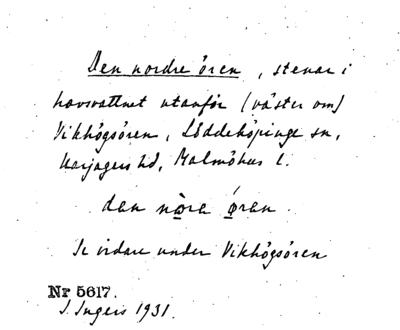 Den nordre ören, stenar i
havsvattnet utanför (väster om)
Vikhögsören, Löddeköpinge sn,
Harjagers hd, Malmöhus l.
den nɷre ǿren.
Se vidare under Vikhögsören
Nr 5617.
I. Ingers 1931.